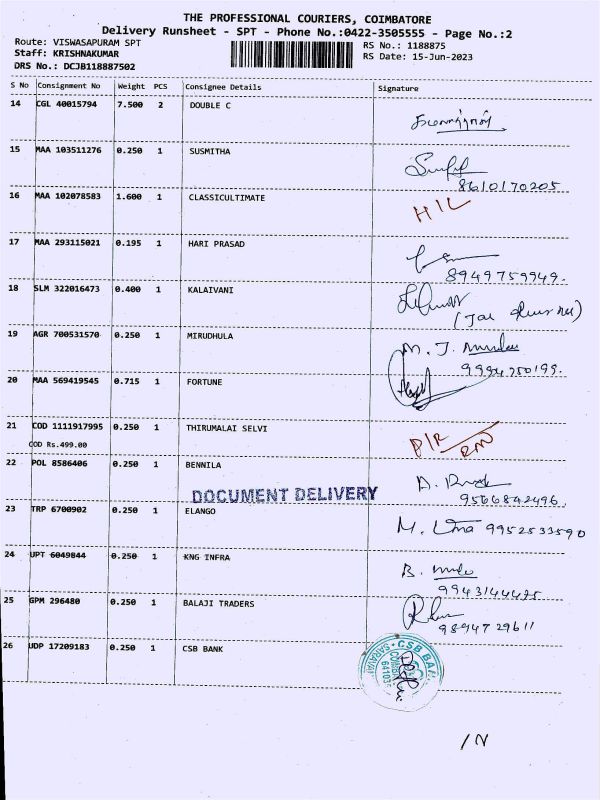 THE PROFESSIONAL COURIERS, COIMBATORE
Delivery Runsheet - SPT - Phone No.:0422-3505555 - Page No.:2
Route: VISWASAPURAM SPT
RS No.: 1188875
Staff: KRISHNAKUMAR
RS Date: 15-Jun-2023
DRS No.: DCJB118887502
S No Consignment No Weight PCS Consignee Details Signature
14 CGL 40015794 7.500 2 DOUBLE C
15 MAA 103511276 0.250 1 SUSMITHA
8610170205
16 MAA 102078583 1.600 1 CLASSICULTIMATE
H I L
17 MAA 293115021 0.195 1 HARI PRASAD
8949759949.
18 SLM 322016473 0.400 1 KALAIVANI
19 AGR 700531570 0.250 1 MIRUDHULA
M. J.
9994750199.
20 MAA 569419545 0.715 1 FORTUNE
21 COD 1111917995 0.250 1 THIRUMALAI SELVI
COD Rs.499.00
22 POL 8586406 0.250 1 BENNILA
9566842496.
DOCUMENT DELIVERY
23 TRP 6700902 0.250 1 ELANGO
M. Uma 9952533590
24 UPT 6049844 0.250 1 KNG INFRA
B.
9943144495
25 GPM 296480 0.250 1 BALAJI TRADERS
9894729611
26 UDP 17209183 0.250 1 CSB BANK
CSB BAN
/ N